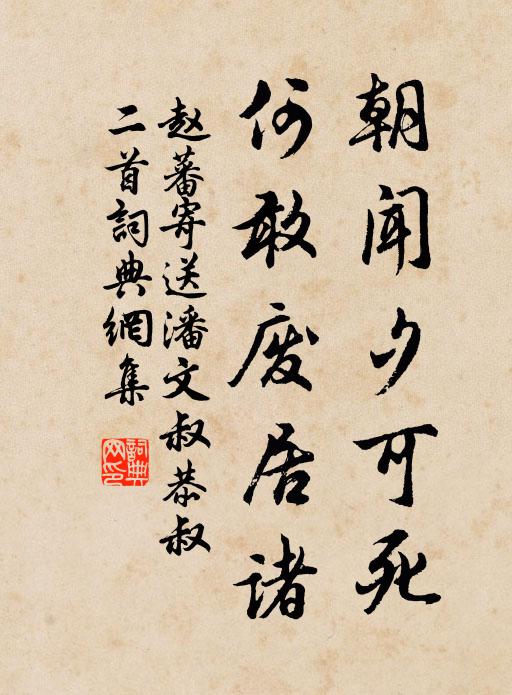 朝闻夕可死
何敢废居诸
赵蕃寄送潘文叔恭叔
二首詞典網集
詞典網印